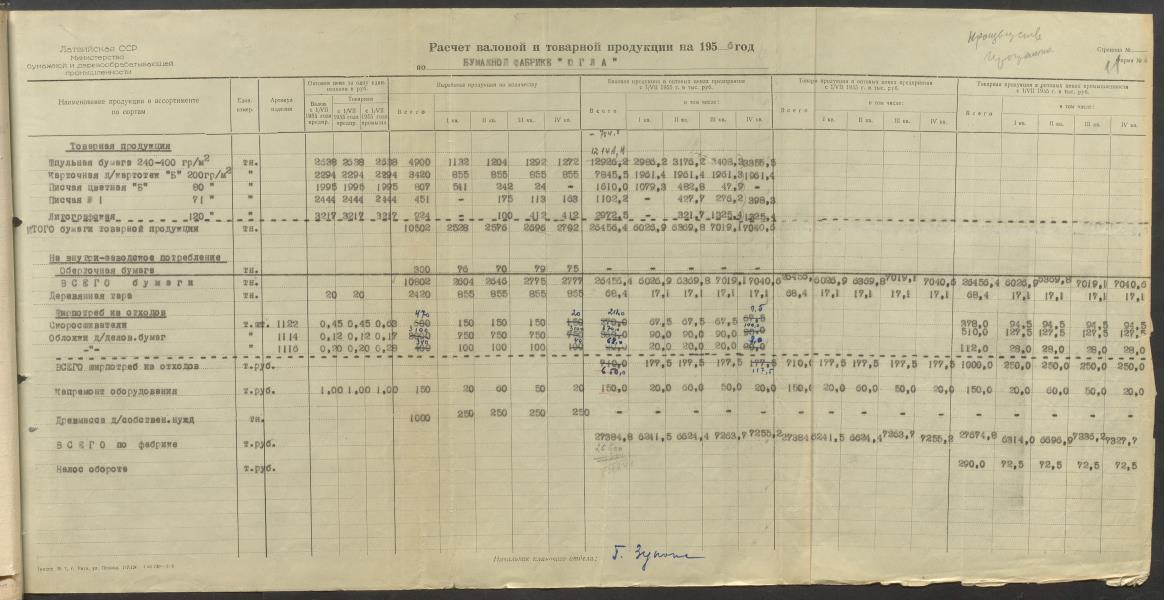 Латвийская ССР
Министерство
бумажной и деревообрабатывающей
промышленности
Расчет валовой и товарной продукции на 195 6 год
по БУМАЖНОЙ ФАБРИКЕ "ЮГЛА"
Страница №
Форма №
Наименование продукции в ассортименте по сортам
Един. измер.
Артикул изделия
Оптовая цена за одну един. изделия в руб.
Валов. с 1/VII 1955 года предпр.
Товарная
с 1/VII 1955 года предпр.
с 1/VII 1955 года промышл.
Всего
Выработка продукции по количеству
I кв. II кв. III кв. IV кв.
Валовая продукция в оптовых ценах предприятия с 1/VII 1955 г. в тыс. руб.
Всего
в том числе:
I кв. II кв. III кв. IV кв.
Товарн. продукция в оптовых ценах предприятия с 1/VII 1955 г. в тыс. руб.
Всего
в том числе:
I кв. II кв. III кв. IV кв.
Товарная продукция в оптовых ценах промышленности с 1/VII 1955 г. в тыс. руб.
Всего
в том числе:
I кв. II кв. III кв. IV кв.
Товарная продукция
Шпульная бумага 240-400 гр/м2 тн. 2638 2638 2638 4900 1132 1204 1292 1272 12926,2 2986,2 3176,2 3408,2 3355,5
Карточная д/картотек "Б" 200гр/м2 " 2294 2294 2294 3420 855 855 855 855 7845,5 1961,4 1961,4 1961,3 1961,4
Писчая цветная "Б" 80 " " 1995 1995 1995 807 541 242 24 - 1610,0 1079,3 482,8 47,9 -
Писчая № 1 71 " " 2444 2444 2444 451 - 175 113 163 1102,2 - 427,7 276,2 398,3
Литографская 120 " " 3217 3217 3217 924 - 100 412 412 2972,5 - 321,7 1325,4 1325,4
ИТОГО бумаги товарной продукции тн. 10502 2528 2576 2696 2702 26456,4 6026,9 6369,8 7019,1 7040,6
На внутри-заводское потребление
Оберточная бумага тн. 300 76 70 79 75 - - - - -
ВСЕГО бумаги тн. 10802 2604 2646 2775 2777 26456,4 6026,9 6369,8 7019,1 7040,6 26456,4 6026,9 6369,8 7019,1 7040,6 26456,4 6026,9 6369,8 7019,1 7040,6
Деревянная тара тн. 20 20 2420 855 855 855 855 68,4 17,1 17,1 17,1 17,1 68,4 17,1 17,1 17,1 17,1 68,4 17,1 17,1 17,1 17,1
Ширпотреб из отходов
Скоросшиватели т.шт. 1122 0,45 0,45 0,63 150 150 150 67,5 67,5 67,5 378,0 94,5 94,5 94,5 94,5
Обложки д/делов.бумаг " 1114 0,12 0,12 0,17 750 750 750 90,0 90,0 90,0 510,0 127,5 127,5 127,5 127,5
-"- " 1116 0,20 0,20 0,28 100 100 100 20,0 20,0 20,0 112,0 28,0 28,0 28,0 28,0
ВСЕГО ширпотреб из отходов т.руб. 710,0 177,5 177,5 177,5 177,5 710,0 177,5 177,5 177,5 177,5 1000,0 250,0 250,0 250,0 250,0
650,0 117,5
Капремонт оборудования т.руб. 1,00 1,00 1,00 150 20 60 50 20 150,0 20,0 60,0 50,0 20,0 150,0 20,0 60,0 50,0 20,0 150,0 20,0 60,0 50,0 20,0
Древмасса д/собствен.нужд тн. 1000 250 250 250 250 - - - - - - - - - - - - - - -
ВСЕГО по фабрике т.руб. 27384,8 6241,5 6624,4 7263,7 7255,2 27384 6241,5 6624,4 7263,7 7255,2 27674,8 6314,0 6696,9 7336,2 7327,7
Налог оборота т.руб. 290,0 72,5 72,5 72,5 72,5
Начальник планового отдела: